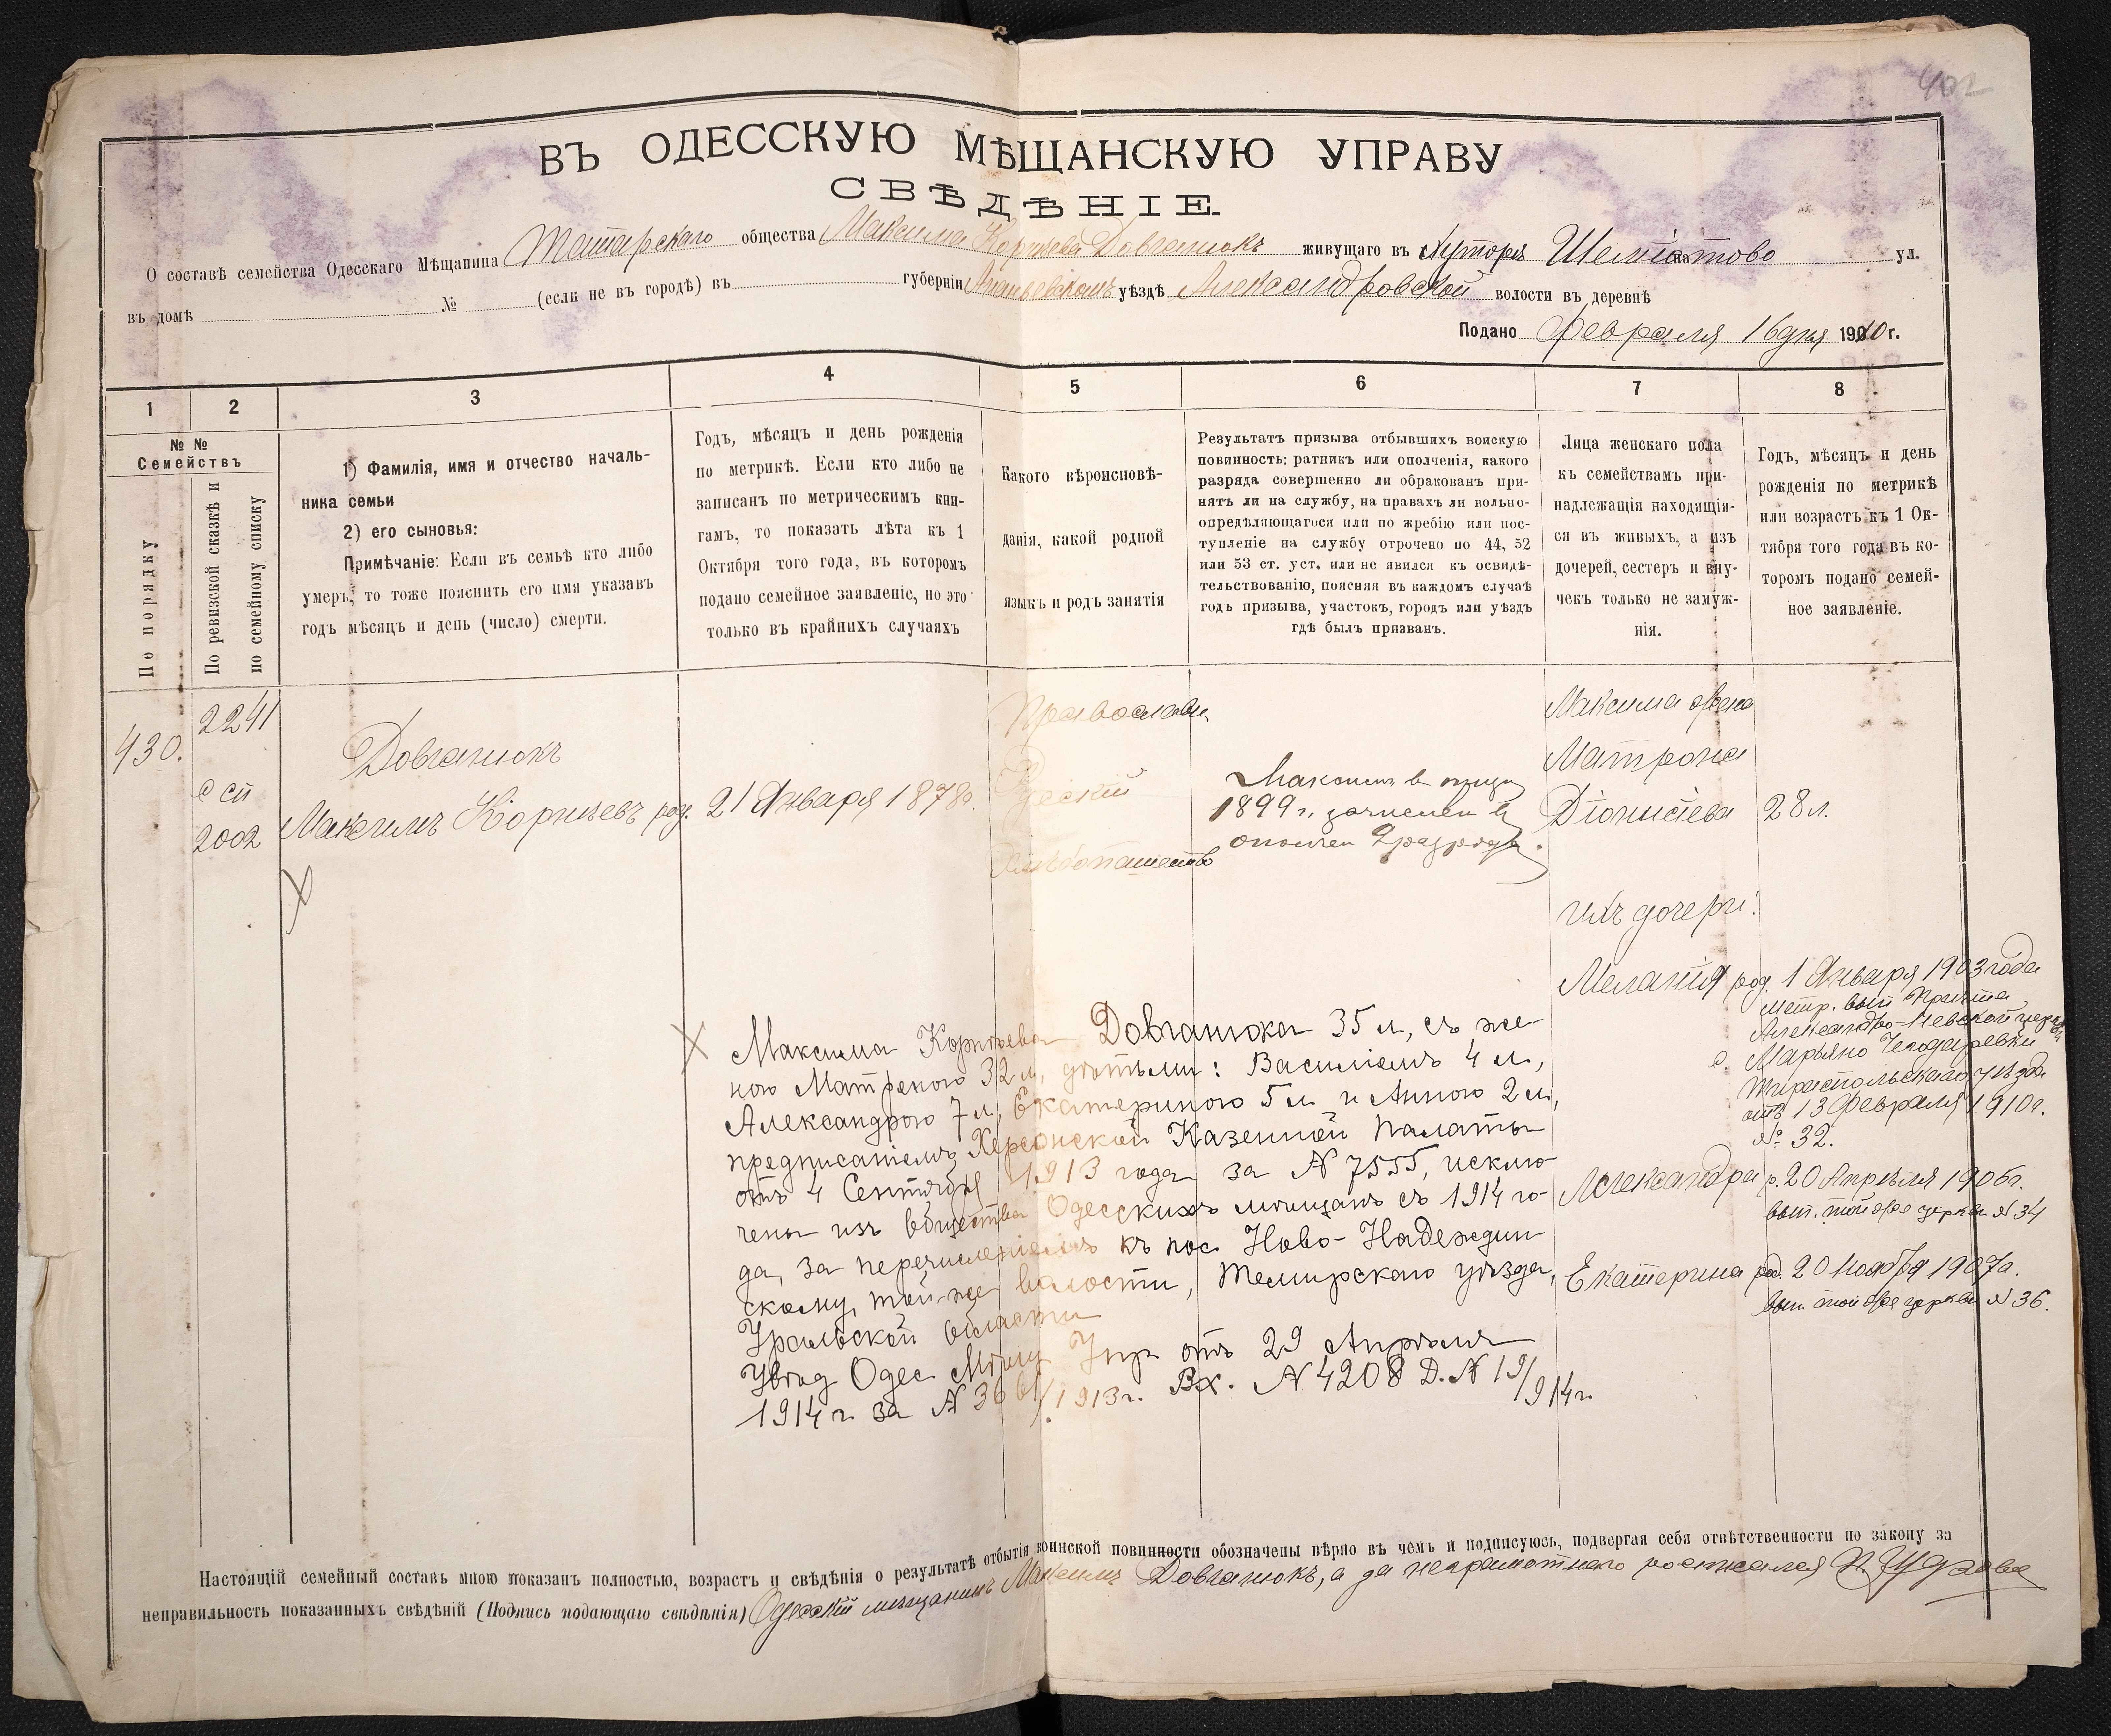 402
ВЪ ОДЕССКУЮ МѢЩАНСКУЮ УПРАВУ
СВѢДѢНІЕ.
О составѣ семейства Одесскаго Мѣщанина Татарскаго общества Максима Корнѣева Довганюкъ живущаго въ Хуторѣ на ул.
въ домѣ № (если не въ городѣ) въ губерніи Ананьевскомъ уѣздѣ Александровской волости въ деревнѣ
Подано Февраля 16 дня 1910 г.
1 2 3 4 5 6 7 8
№ №
Семействъ
По порядку
По ревизской сказкѣ и
по семейному списку
1) Фамилія, имя и отчество началь-
ника семьи
2) его сыновья:
Примѣчаніе: Если въ семьѣ кто либо
умеръ, то тоже пояснить его имя указавъ
годъ мѣсяцъ и день (число) смерти.
Годъ, мѣсяцъ и день рожденія
по метрикѣ. Если кто либо не
записанъ по метрическимъ кни-
гамъ, то показать лѣта къ 1
Октября того года, въ которомъ
подано семейное заявленіе, но это
только въ крайнихъ случаяхъ
Какого вѣроисповѣ-
данія, какой родной
языкъ и родъ занятія
Результатъ призыва отбывшихъ воискую
повинность: ратникъ или ополченія, какого
разряда совершенно ли обракованъ при-
нятъ ли на службу, на правахъ ли вольно-
опредѣляющагося или по жребію или пос-
тупленіе на службу отрочено по 44, 52
или 53 ст. уст. или не явился къ освидѣ-
тельствованію, поясняя въ каждомъ случаѣ
годъ призыва, участокъ, городъ или уѣздъ
гдѣ былъ призванъ.
Лица женскаго пола
къ семействамъ при-
надлежащія находящія-
ся въ живыхъ, а изъ
дочерей, сестеръ и вну-
чекъ только не замуж-
нія.
Годъ, мѣсяцъ и день
рожденія по метрикѣ
или возрастъ къ 1 Ок-
тября того года въ ко-
торомъ подано семей-
ное заявленіе.
430.
2241
с сп
2002
Довганюкъ
Максимъ Корнѣевъ род. 21 Января 1878г.
Православн
Русскій
Хлѣбопашество
Максим в призыв
1899 г. зачислен в
ополчен 2 разряда.
Максима жена
Матрона
Діонисіева 28 л.
ихъ дочери:
Меланія род. 1 Января 1903 года
метр. вып причта
Александро-Невской церкви
с. Марьяно Чегодаревки
Тираспольскаго уѣзда
отъ 13 Февраля 1910 г.
№ 32.
Александра р. 20 Апрѣля 1906г.
вып. той же церкви № 34
Екатерина род. 20 Ноября 1907г.
вып той же церкви № 36.
Максима Корнѣева Довганюка 35 л, съ же-
ною Матреною 32 л, дѣтьми: Василіемъ 4 л,
Александрою 7 л, Екатериною 5 л и Анною 2 л,
предписаніемъ Херсонской Казенной Палаты
отъ 4 Сентября 1913 года за № 7555, исклю-
чены изъ общества Одесскихъ мѣщанъ съ 1914 го-
да, за перечисленіемъ къ пос. Ново-Надеждин-
скому, той-же волости, Темирскаго уѣзда,
Уральской области
Увѣд Одес Мѣщ Упр отъ 29 Апрѣля
1914 г. за № 3661/1913 г. Вх. № 4208 Д. № 19/914 г.
Настоящій семейный составъ мною показанъ полностью, возрастъ и свѣдѣнія о результатѣ отбытія воинской повинности обозначены вѣрно въ чемъ и подписуюсь, подвергая себя отвѣтственности по закону за
неправильность показанныхъ свѣдѣній (Подпись подающаго свѣдѣнія) Одесскій мѣщанинъ Максимъ Довганюкъ, а за неграмотнаго росписался